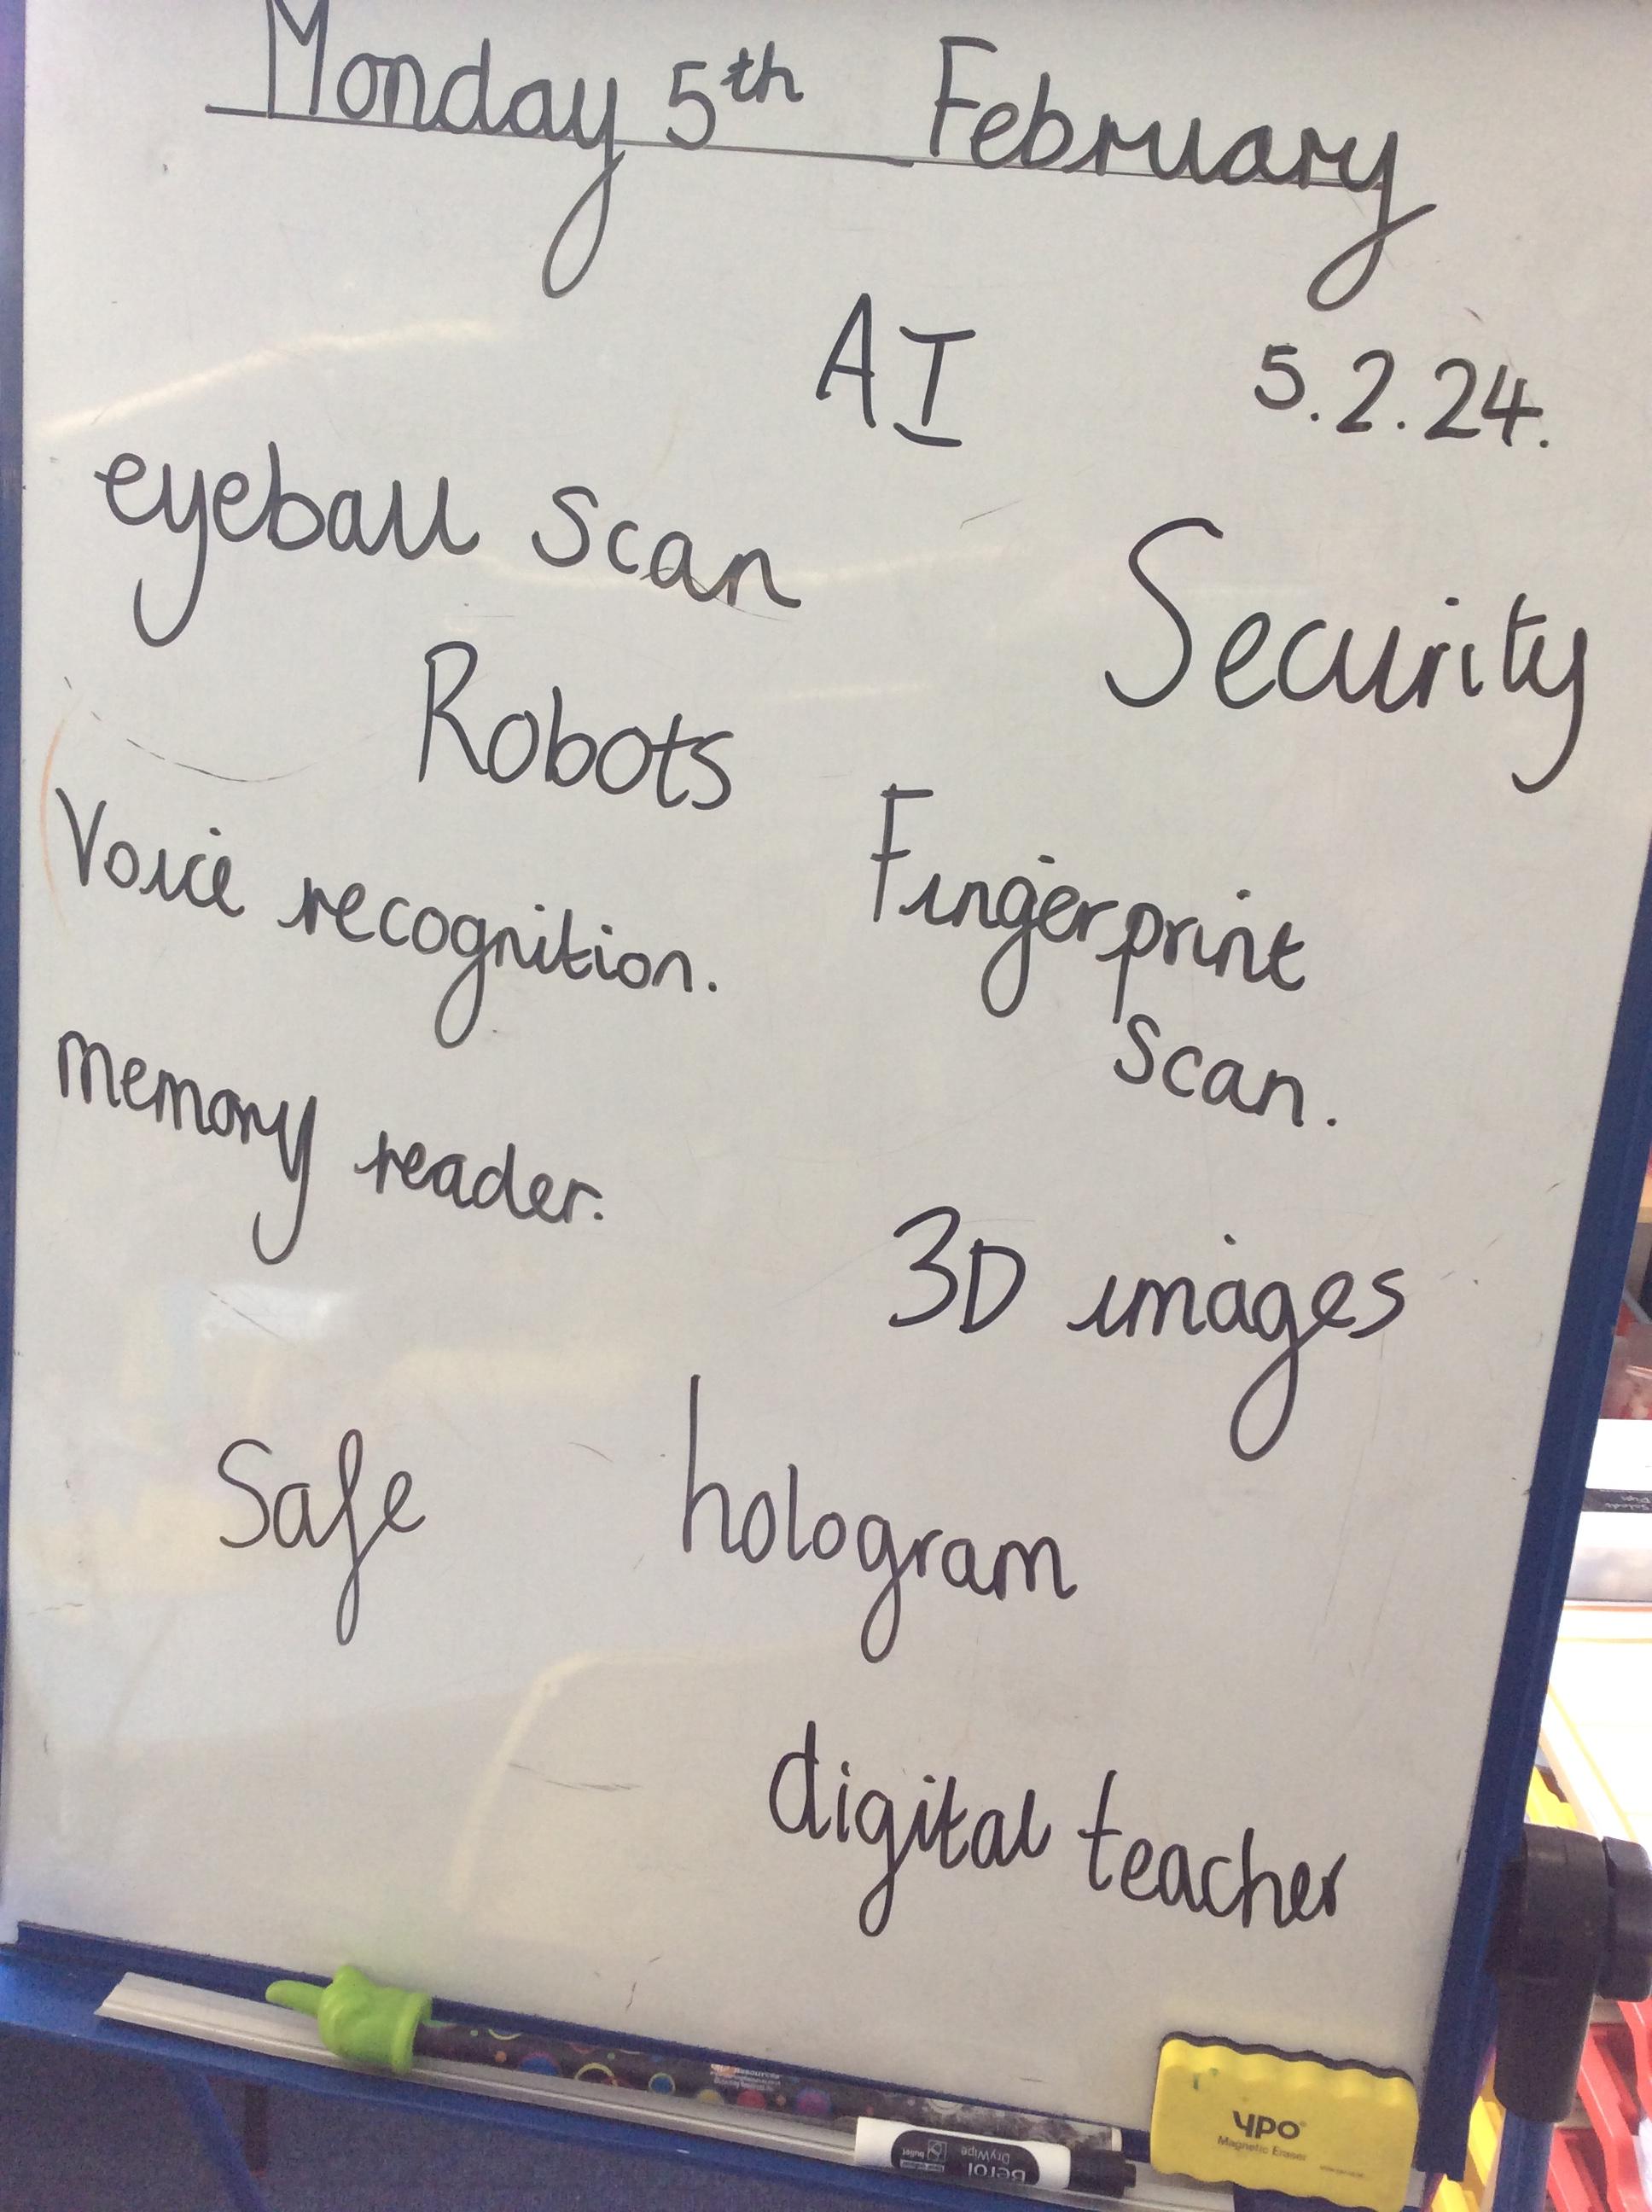 Monday 5th February
AI
5.2.24.
eyeball scan
Security
Robots
Voice recognition.
Fingerprint
scan.
memory reader.
3D images
Safe
hologram
digital teacher
Berol
DryWipe
bullet
YPO
Magnetic Eraser